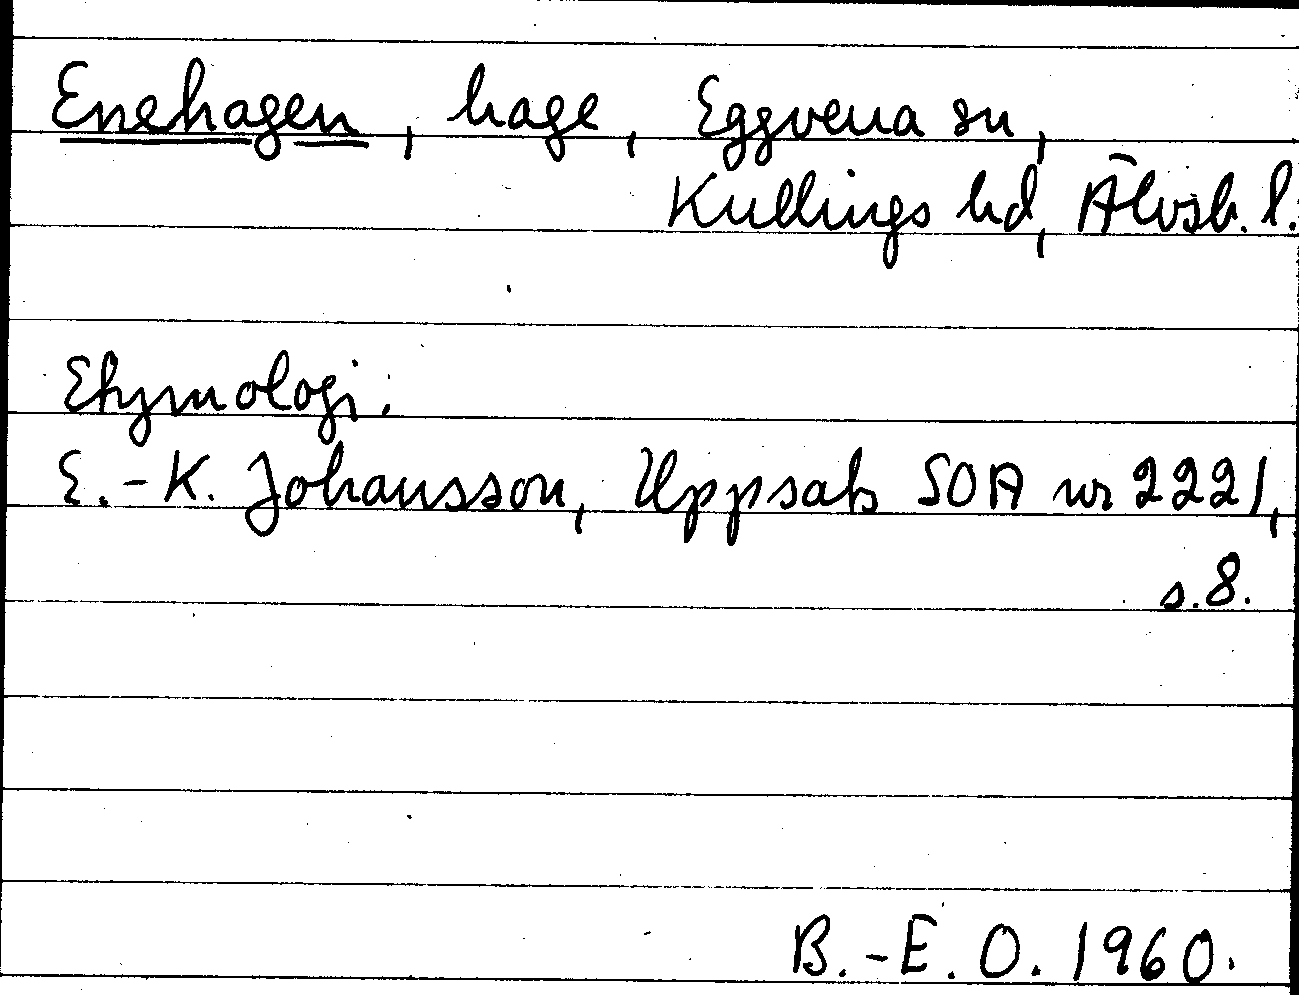 Enehagen, hage, Eggvena sn,
Kullings hd, Älvsb. l.
Etymologi.
E.-K. Johansson, Uppsats SOA nr 2221,
s.8.
B.-E. O. 1960.